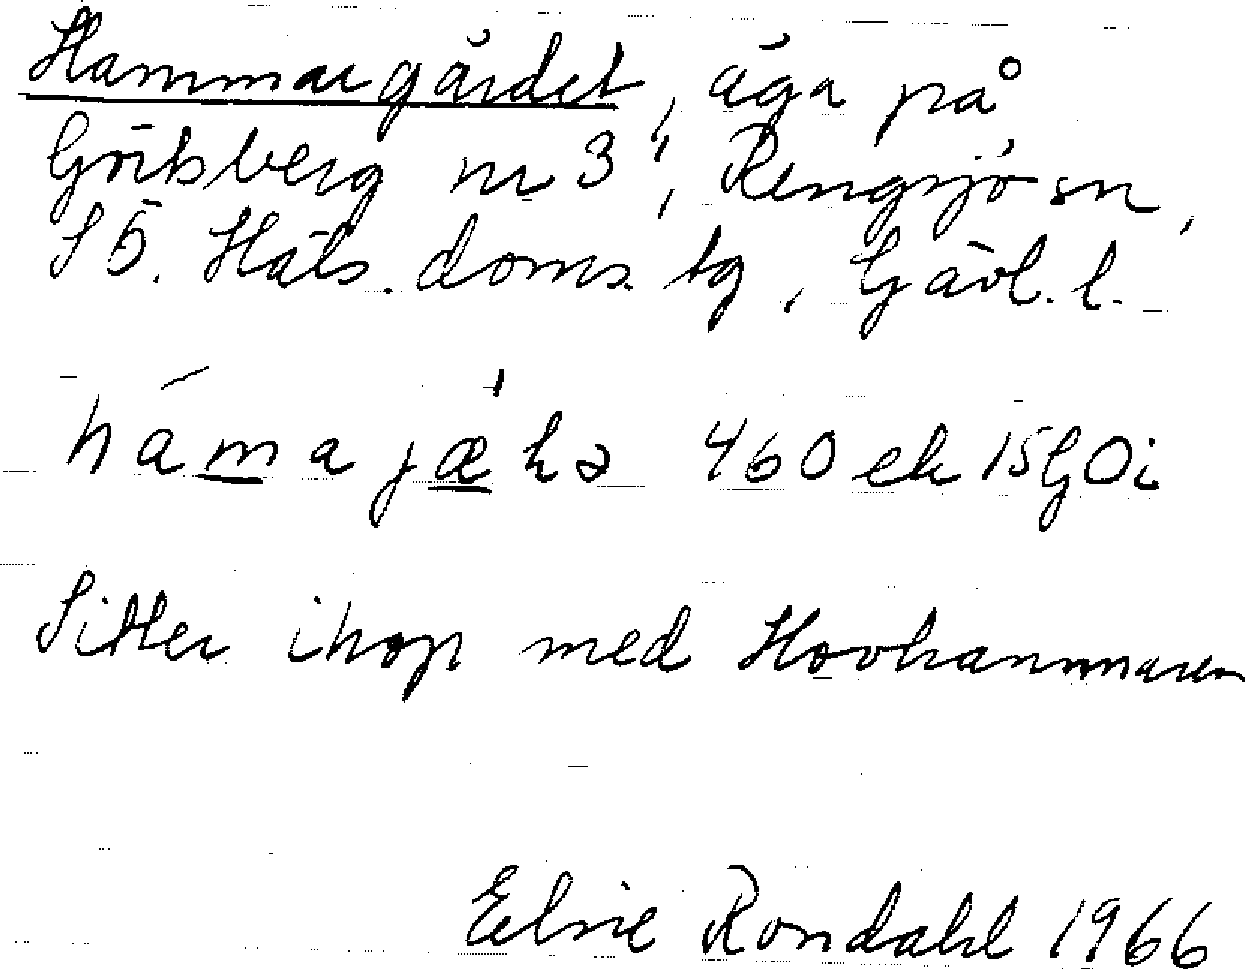 Hammargärdet, äga på
Görtsberg nr 3⁴, Rengsjö sn,
SÖ. Häls. doms. tg, Gävl. l.
hámajæ̀ʟə 460 ek 15G0i
Sitter ihop med Hovhammaren
Elsie Rondahl 1966